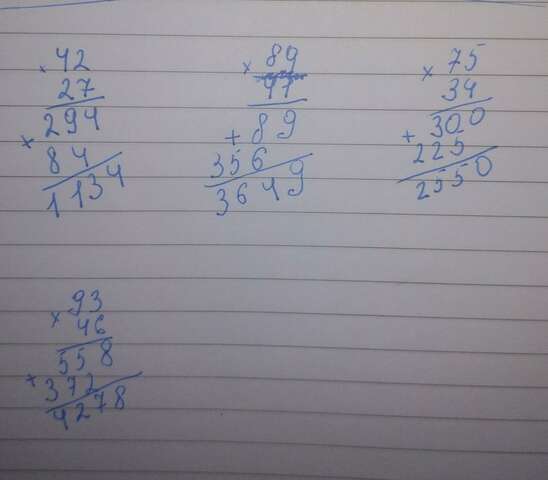 × 42
27
294
× 84
1134
× 89
41
+ 89
356
3649
× 75
34
300
+ 225
2550
× 93
46
558
+ 372
4278